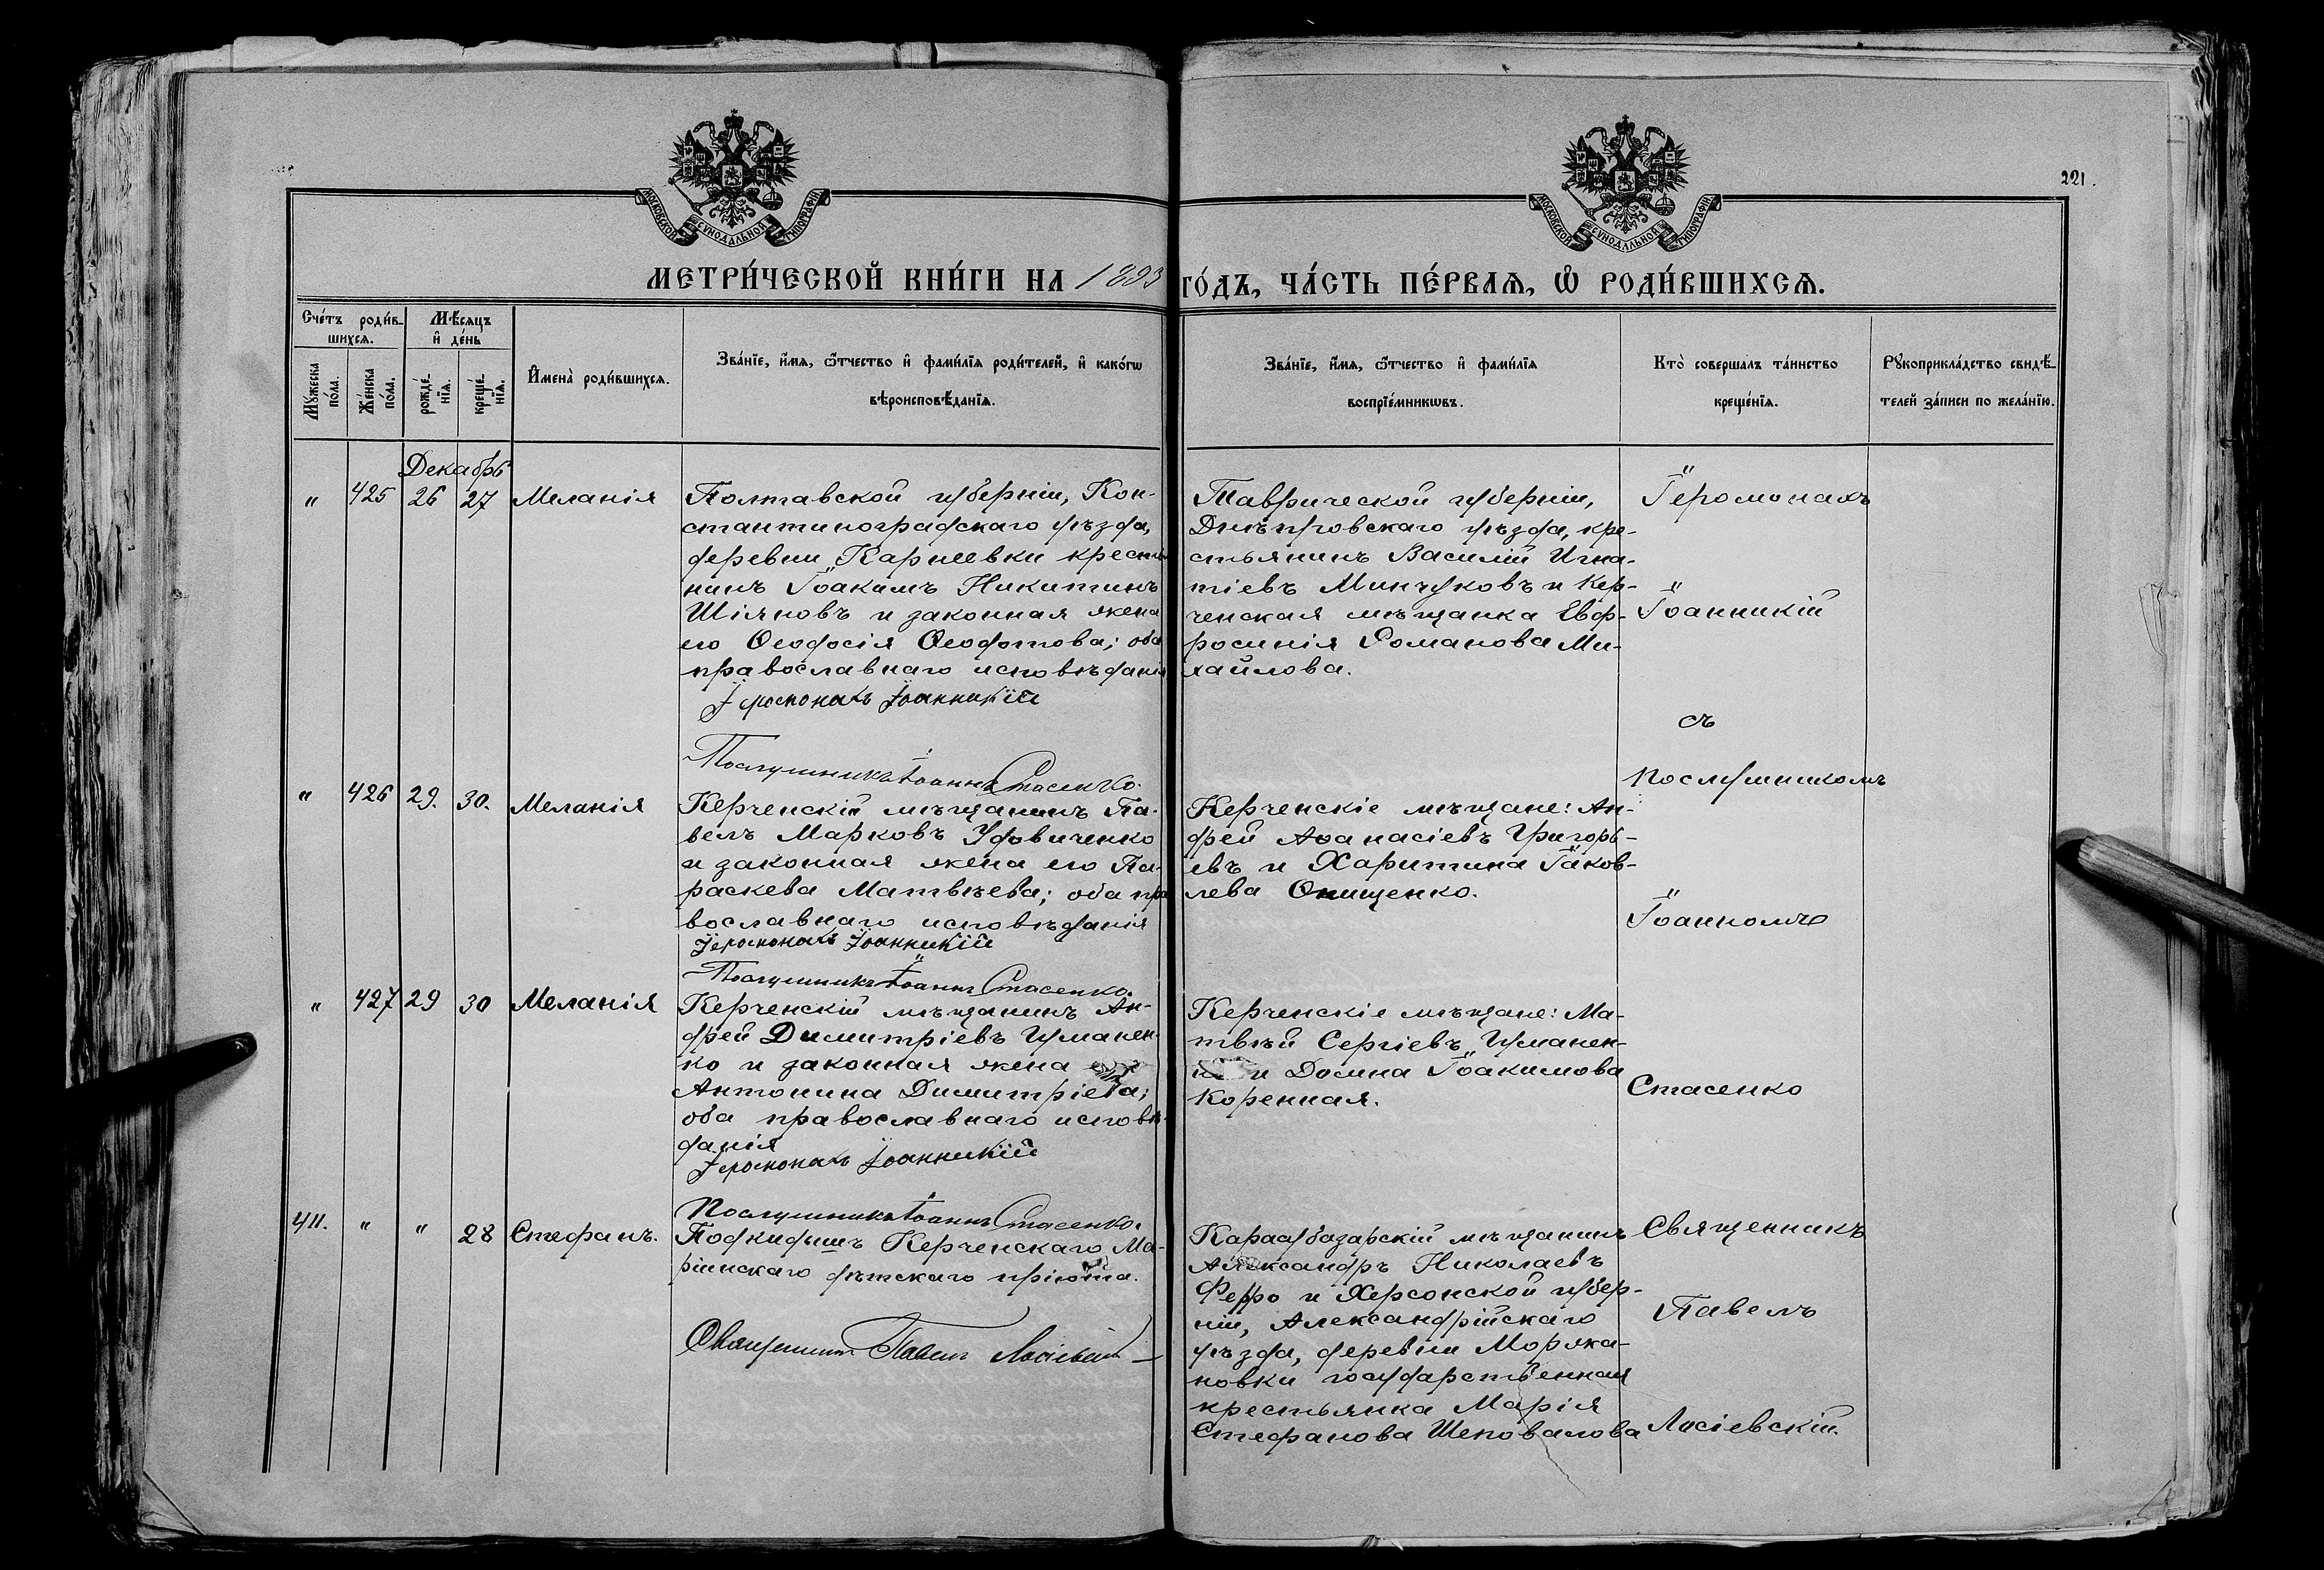 221.
МОСКОВСКОЙ СѴНОДАЛЬНОЙ ТИПОГРАФІИ
МОСКОВСКОЙ СѴНОДАЛЬНОЙ ТИПОГРАФІИ
МЕТРИ́ЧЕСКОЙ КНИ́ГИ НА 1893 ГО́ДЪ, ЧА́СТЬ ПЕ́РВАѦ, Ѽ РОДИ́ВШИХСѦ.
Сче́тъ роди́в-
шихсѧ.
Мꙋ́жеска по́ла.
Же́нска по́ла.
Мѣ́сѧцъ и҆ де́нь
рожде́-нїѧ.
креще́-нїѧ.
И҆мена̀ роди́вшихсѧ.
Зва́нїе, и҆́мѧ, ѻ҆́тчество и҆ фами́лїѧ роди́телей, и҆ како́гѡ
вѣроисповѣ́данїѧ.
Зва́нїе, и҆́мѧ, ѻ҆́тчество и҆ фами́лїѧ
воспрїе́мникѡвъ.
Кто̀ соверша́лъ та́инство
креще́нїѧ.
Рꙋкоприкла́дство свидѣ́-
телей за́писи по жела́нїю.
Декабрь
" 425 26 27 Меланія
Полтавской губерніи, Кон-
стантиноградскаго уѣзда,
деревни Карлеевки крестья
нинъ Іоакимъ Никитинъ
Шіяновъ и законная жена
его Ѳеодосія Ѳеодотова; оба
православнаго исповѣданія
Іеромонахъ Іоанникій
Послушникъ Іоаннъ Стасенко.
Таврической губерніи,
Днѣпровскаго уѣзда, кре-
стьянинъ Василій Игна-
тіевъ Минчуковъ и Кер-
ченская мѣщанка Евф-
росинія Романова Ми-
хайлова.
Іеромонахъ
Іоанникій
съ
послушникомъ
Іоанномъ
Стасенко
" 426 29. 30. Меланія
Керченскій мѣщанинъ Па-
велъ Марковъ Удовиченко
и законная жена его Па-
раскева Матвѣева; оба пра
вославнаго исповѣданія
Іеромонахъ Іоанникій
Послушникъ Іоаннъ Стасенко.
Керченскіе мѣщане: Ан-
дрей Аѳанасіевъ Григорь-
евъ и Харитина Іаков-
лева Онищенко.
" 427 29 30 Меланія
Керченскій мѣщанинъ Ан-
дрей Димитріевъ Цуманен-
ко и законная жена его
Антонина Димитріева;
оба православнаго исповѣ-
данія
Іеромонахъ Іоанникій
Послушникъ Іоаннъ Стасенко.
Керченскіе мѣщане: Ма-
твѣй Сергіевъ Цуманен-
ко и Домна Іоакимова
Коренная.
411. " " 28 Стефанъ.
Подкидышъ Керченскаго Ма-
ріинскаго дѣтскаго пріюта.
Священникъ Павелъ Лосіевскій
Карасубазарскій мѣщанинъ
Александръ Николаевъ
Ферро и Херсонской губер-
ніи, Александрійскаго
уѣзда, деревни Моржа-
новки государственная
крестьянка Марія
Стефанова Шеповалова
Священникъ
Павелъ
Лосіевскій.